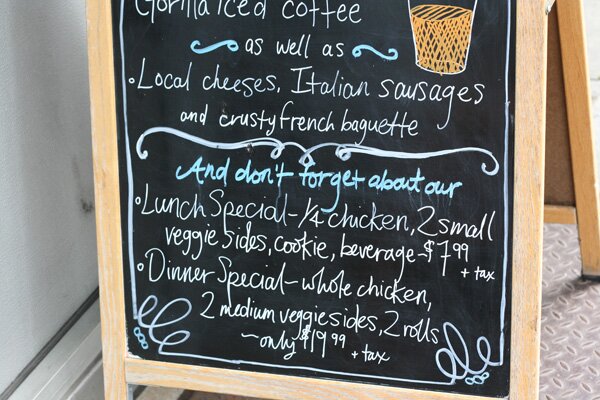 Gorilla iced coffee
~ as well as ~
• Local cheeses, Italian sausages
and crusty french baguette
And don't forget about our
• Lunch Special - 1/4 chicken, 2 small
veggie sides, cookie, beverage - $7.99
+ tax
• Dinner Special - whole chicken,
2 medium veggie sides, 2 rolls
~ only $19.99 + tax